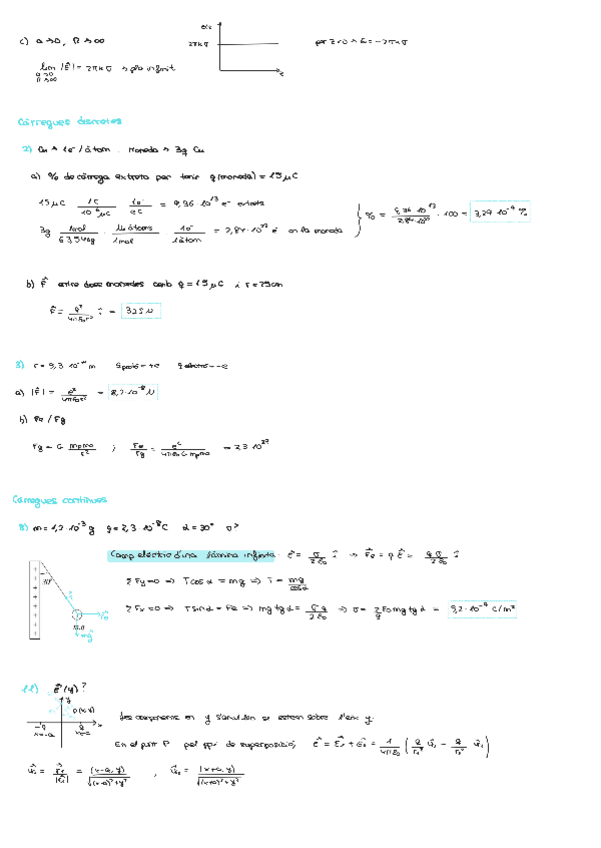 E/σ
c) a→0, R→∞ 2πKσ per z<0 → E=-2πKσ
lim |E| = 2πKσ → pla infinit
a→0
R→∞
z
Càrregues discretes
2) Cu → 1e⁻/àtom. Moneda → 3g Cu
a) % de càrrega extreta per tenir q(moneda) = 15 μC
15 μC · 1C / 10⁶ μC · 1e⁻ / eC = 9,36·10¹³ e⁻ extrets
3g · 1mol / 63,546g · NA àtoms / 1mol · 1e⁻ / 1àtom = 2,84·10²² e⁻ en la moneda
% = 9,36·10¹³ / 2,84·10²² · 100 = 3,29·10⁻⁷ %
b) F entre dues monedes amb q = 15 μC i r = 25cm
F = q² / 4πε₀r² î = 32,5 N
3) r = 5,3·10⁻¹¹ m qprotó = +e qelectró = -e
a) |F| = e² / 4πε₀r² = 8,2·10⁻⁸ N
b) Fe / Fg
Fg = G mpme / r² ; Fe / Fg = e² / 4πε₀Gmpme = 2,3·10³⁹
Càrregues contínues
8) m = 1,2·10⁻³ g q = 2,3·10⁻⁸ C α = 30° σ?
Camp elèctric d'una làmina infinita: E = σ / 2ε₀ î → Fe = qE = qσ / 2ε₀ î
ΣFy=0 => Tcosα = mg => T = mg / cosα
30°
ΣFx=0 => Tsinα = Fe => mgtgα = σq / 2ε₀ => σ = 2ε₀mgtgα / q =
m,q
mg
11) E(y)?
y
P(x,y)
-q q x
Les components en y s'anul·len si estem sobre l'eix y.
En el punt P pel ppi de superposició, E = E₁ + E₂ = 1 / 4πε₀ ( q / r₁² û₁ - q / r₂² û₂ )
û₁ = r₁ / |r₁| = (x-a, y) / √(x-a)²+y² , û₂ = (x+a, y) / √(x+a)²+y²